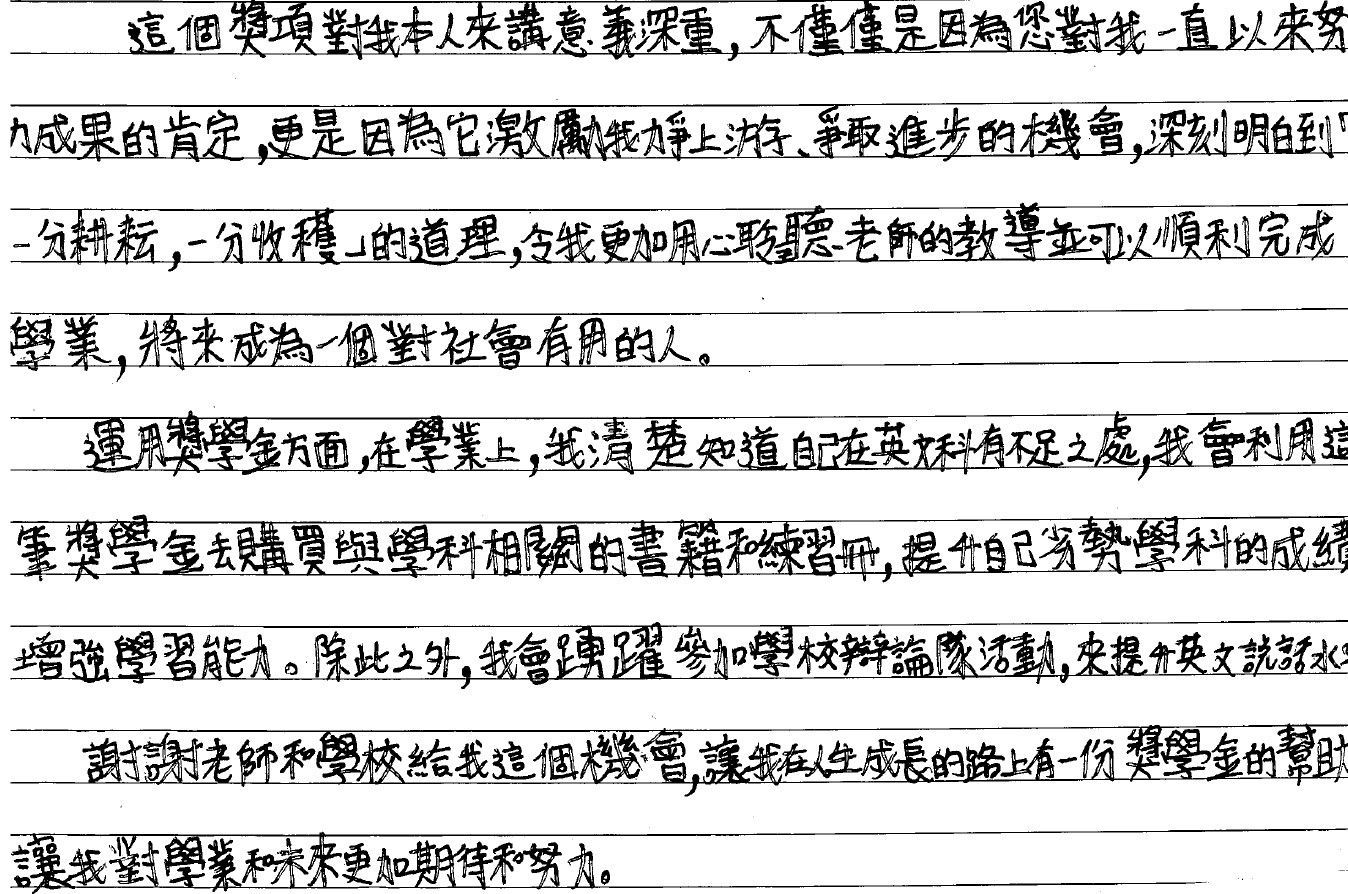 這個獎項對我本人來講意義深重，不僅僅是因為您對我一直以來努
力成果的肯定，更是因為它激勵我力爭上游、爭取進步的機會，深刻明白到「
一分耕耘，一分收穫」的道理，令我更加用心聆聽老師的教導並可以順利完成
學業，將來成為一個對社會有用的人。
運用獎學金方面，在學業上，我清楚知道自己在英文科有不足之處，我會利用這
筆獎學金去購買與學科相關的書籍和練習冊，提升自己劣勢學科的成績
增強學習能力。除此之外，我會踴躍參加學校辯論隊活動，來提升英文說話水
謝謝老師和學校給我這個機會，讓我在人生成長的路上有一份獎學金的幫助
讓我對學業和未來更加期待和努力。